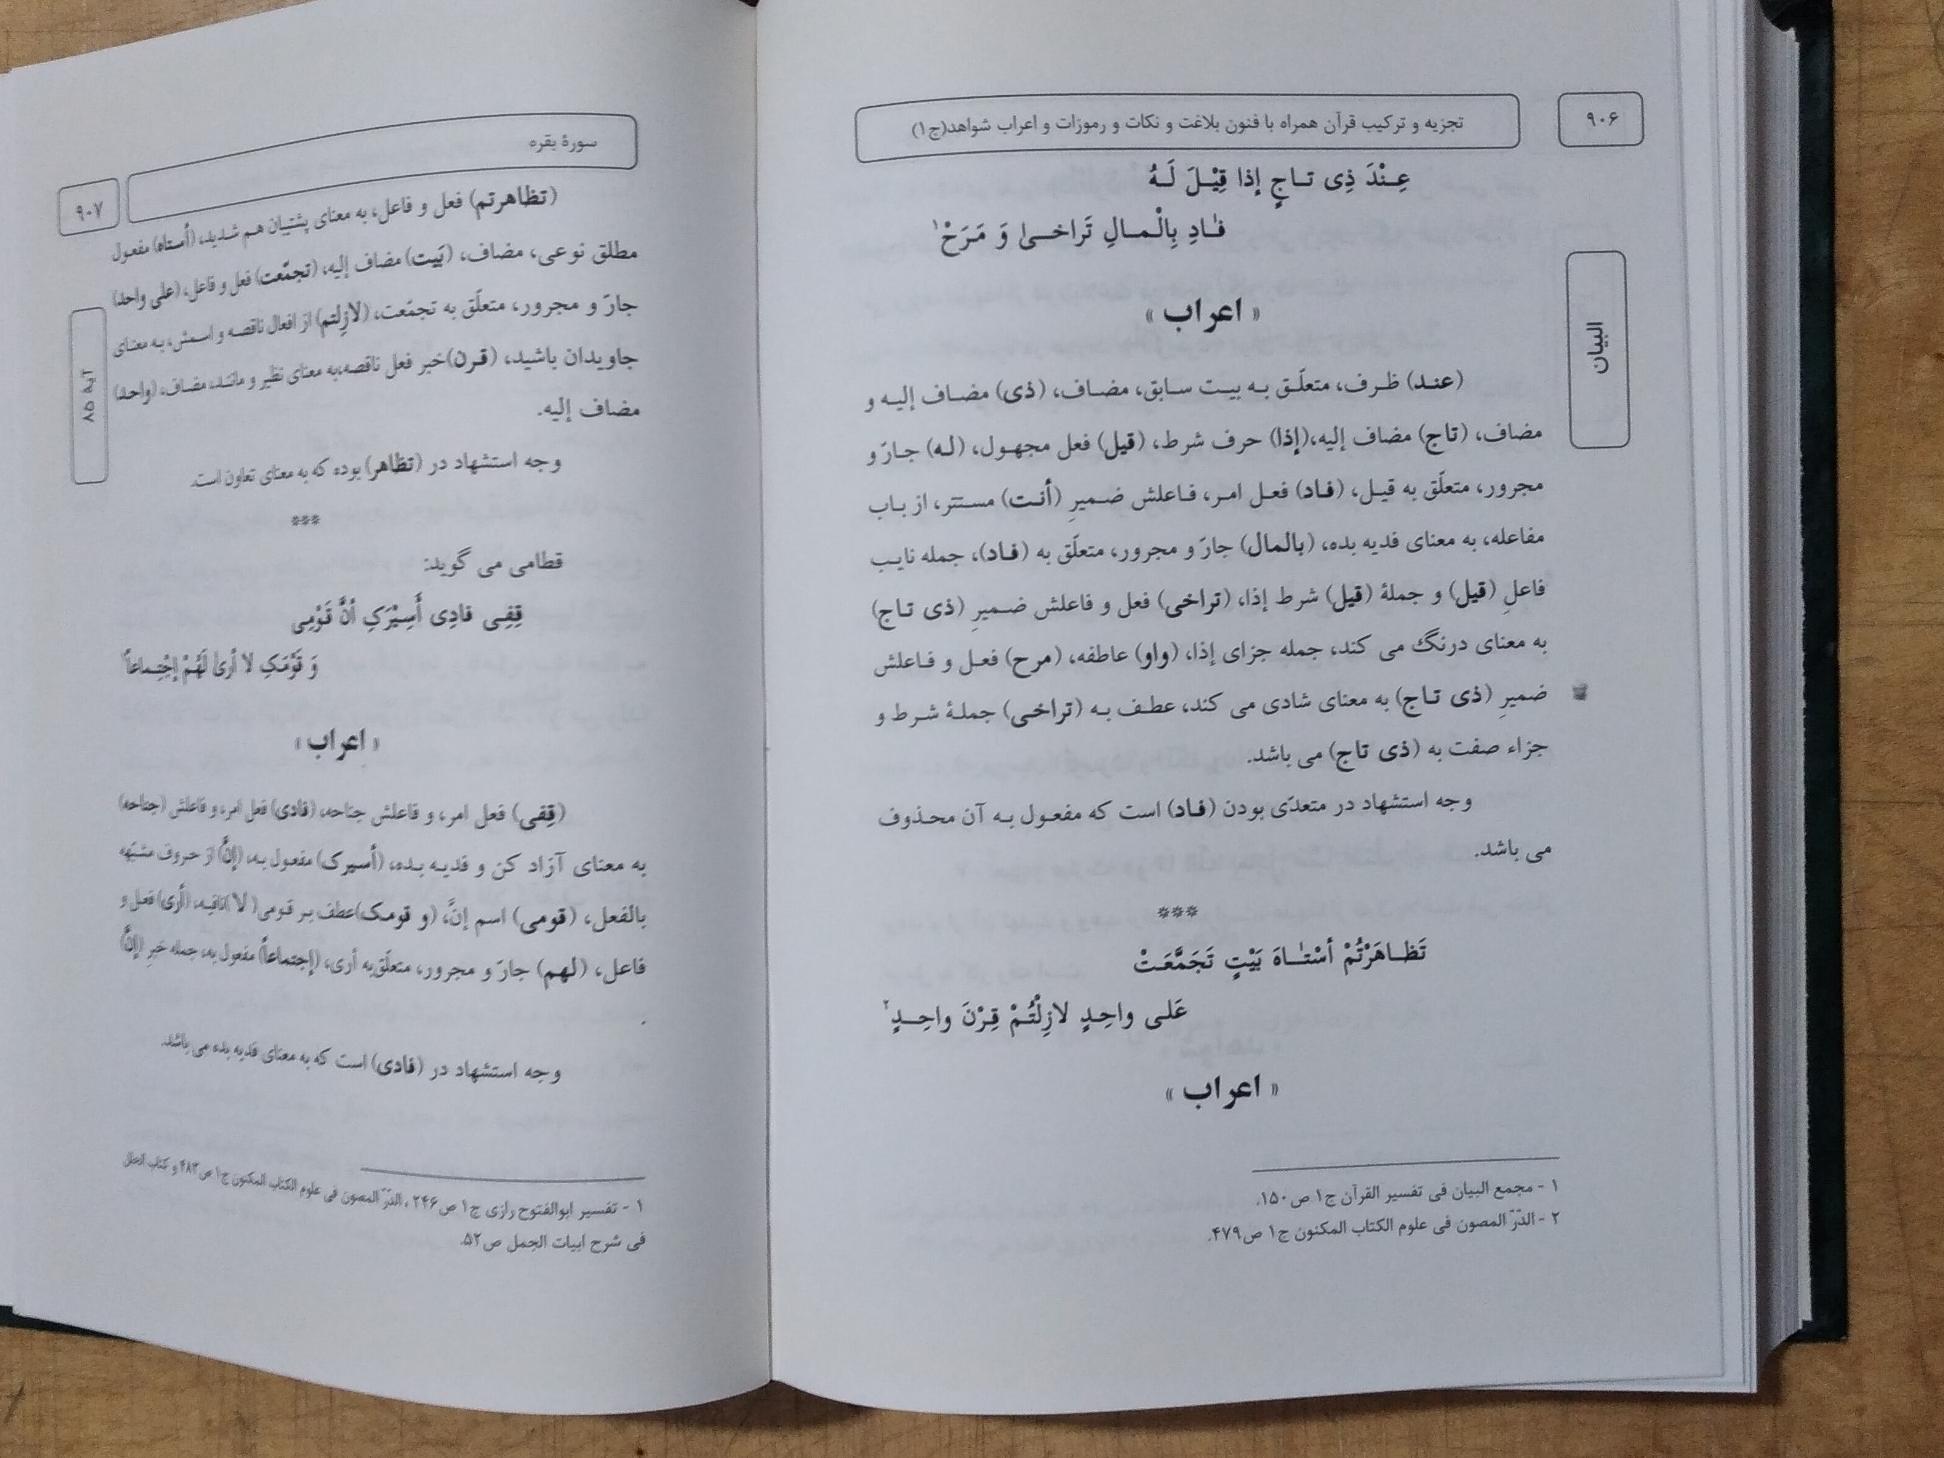 ۹۰۶
تجزیه و ترکیب قرآن همراه با فنون بلاغت و نکات و رموزات و اعراب شواهد(ج۱)
البیان
عِـنْدَ ذِی تـاجٍ إذا قِیْـلَ لَـهُ
فـٰادِ بِالْـمـالِ تَراخـیٰ وَ مَرَحْ۱
« اعراب »
(عنـد) ظـرف، متعلّـق بـه بیـت سـابق، مضـاف، (ذی) مضـاف إلیـه و
مضاف، (تاج) مضاف إلیه،(إذا) حرف شرط، (قیل) فعل مجهـول، (لـه) جـارّ و
مجرور، متعلّق به قیـل، (فـاد) فعـل امـر، فـاعلش ضـمیرِ (أنـت) مسـتتر، از بـاب
مفاعله، به معنای فدیه بده، (بالمال) جارّ و مجرور، متعلّق به (فـاد)، جمله نایـب
فاعلِ (قیل) و جملهٔ (قیل) شرط إذا، (تراخی) فعل و فاعلش ضـمیرِ (ذی تـاج)
به معنای درنگ می کند، جمله جزای إذا، (واو) عاطفه، (مرح) فعـل و فـاعلش
ضمیرِ (ذی تـاج) به معنای شادی می کند، عطـف بـه (تراخـی) جملـهٔ شـرط و
جزاء صفت به (ذی تاج) می باشد.
وجه استشهاد در متعدّی بودن (فـاد) است که مفعـول بـه آن محـذوف
می باشد.
***
تَظـاهَرْتُمْ أسْتـٰـاهَ بَیْتٍ تَجَمَّعَـتْ
عَلـی واحِـدٍ لازِلْتُـمْ قِـرْنَ واحِــدٍ۲
« اعراب »
۱ - مجمع البیان فی تفسیر القرآن ج۱ ص۱۵۰.
۲ - الدّرّ المصون فی علوم الکتاب المکنون ج۱ ص۴۷۹.
سورهٔ بقره
۹۰۷
آیه ۸۵
(تظاهرتم) فعل و فاعل، به معنای پشتیبان هـم شـدید، (أستاه) مفعـول
مطلق نوعی، مضاف، (بَیت) مضاف إلیه، (تجمّعت) فعل و فاعل، (علی واحد)
جارّ و مجرور، متعلّق به تجمّعت، (لازِلتم) از افعال ناقصـه و اسـمش، بـه معنـای
جاویدان باشید، (قـرن)خبر فعل ناقصه،به معنای نظیر و ماننـد، مضـاف، (واحـد)
مضاف إلیه.
وجه استشهاد در (تظاهر) بوده که به معنای تعاون است.
***
قطامی می گوید:
قِفِـی فادِی أَسِیْرَکِ أنَّ قَوْمِی
وَ قَوْمَکِ لا أریٰ لَهُمْ إجْتِـماعاً۱
« اعراب »
(قِفِی) فعل امر، و فاعلش جناحه، (فادی) فعل امر، و فاعلش (جناحه)
به معنای آزاد کن و فدیـه بـده، (أسیرک) مفعـول بـه، (إنَّ) از حـروف مشبّهه
بالفعل، (قومی) اسم إنَّ، (و قومک)عطف بر قومی( لا )نافیه، (أری) فعـل و
فاعل، (لهم) جارّ و مجرور، متعلّق‌به أری، (إجتماعاً) مفعول به، جمله خبرِ (إنَّ)
.
وجه استشهاد در (فادی) است که به معنای فدیه بده می باشد.
۱ - تفسیر ابوالفتوح رازی ج۱ ص۲۴۶ ، الدّرّ المصون فی علوم الکتاب المکنون ج۱ ص۴۸۳ و کتاب الحلل
فی شرح ابیات الجمل ص۵۲.